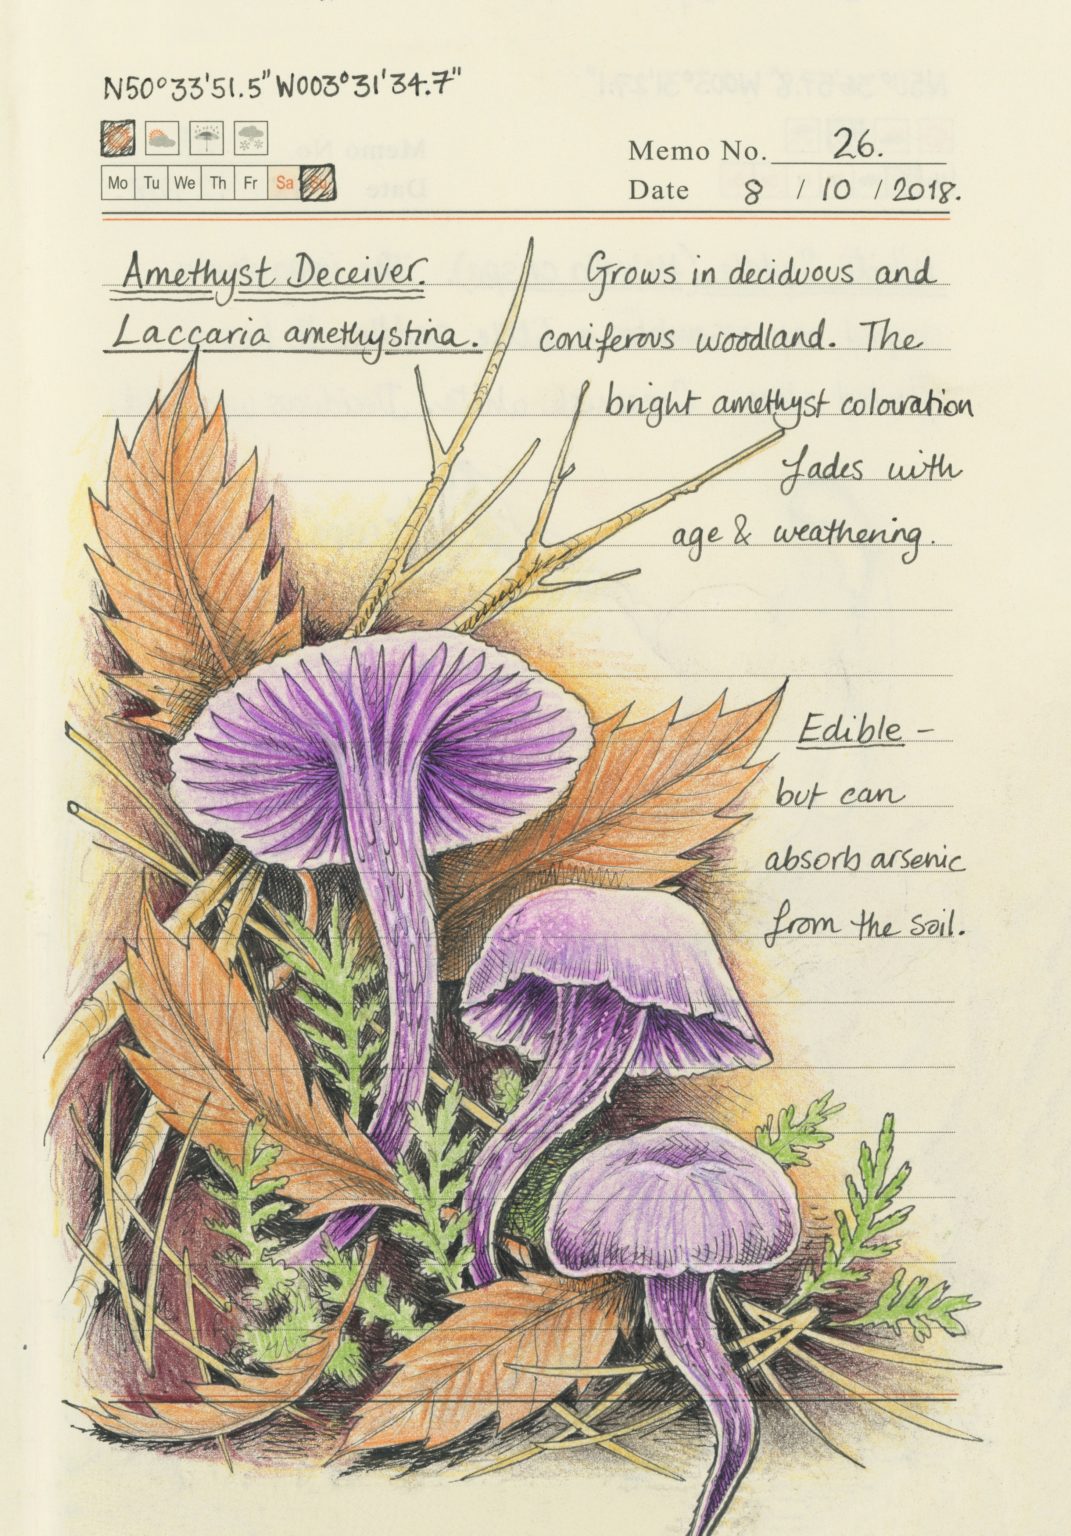 N50°33'51.5" W003°31'34.7"
Memo No. 26.
Mo Tu We Th Fr Sa Su
Date 8 / 10 / 2018.
Amethyst Deceiver.
Laccaria amethystina.
Grows in deciduous and
coniferous woodland. The
bright amethyst colouration
fades with
age & weathering.
Edible –
but can
absorb arsenic
from the soil.